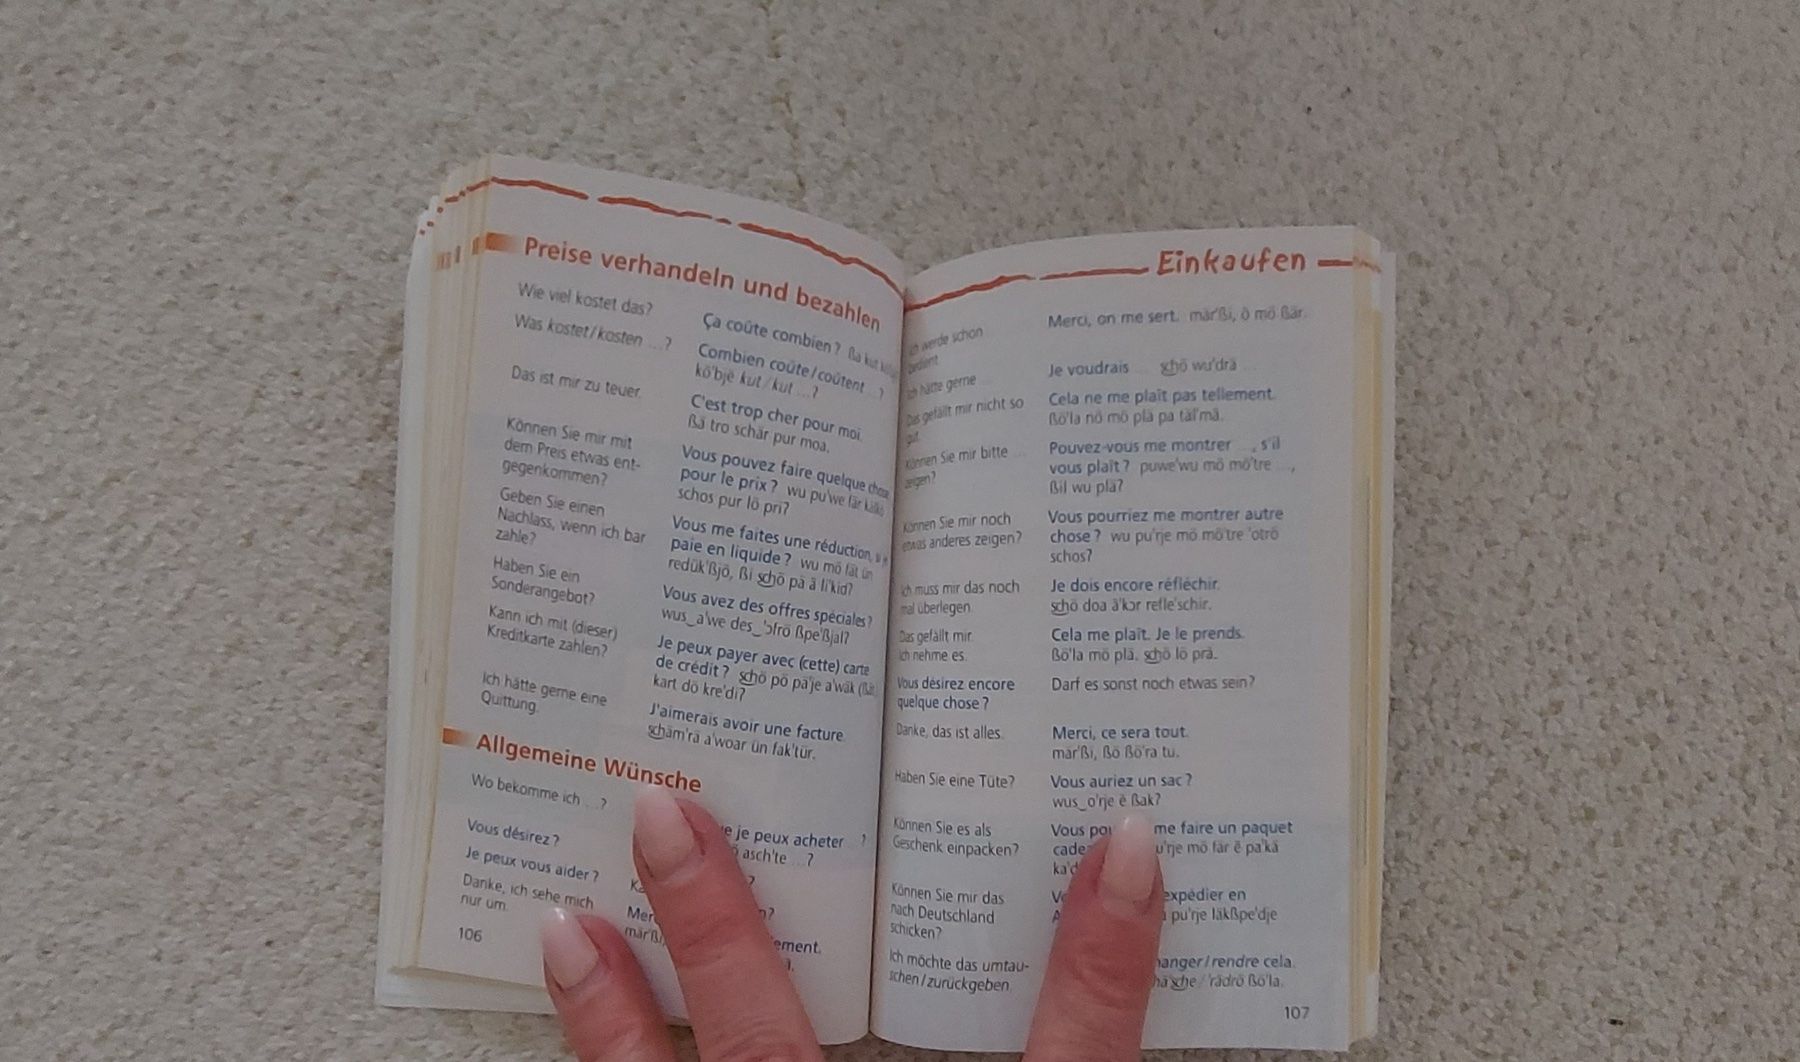 Preise verhandeln und bezahlen
Wie viel kostet das?
Ça coûte combien? ßa kut
Was kostet/kosten ...?
Combien coûte/coûtent ...?
kõ'bjẽ kut/kut ...?
Das ist mir zu teuer.
C'est trop cher pour moi.
ßä tro schär pur moa.
Können Sie mir mit
dem Preis etwas ent-
gegenkommen?
Vous pouvez faire quelque chose
pour le prix? wu pu'we fär
schos pur lö pri?
Geben Sie einen
Nachlass, wenn ich bar
zahle?
Vous me faites une réduction,
paie en liquide? wu mö fät ün
redük'ßjõ, ßi schö pä ã li'kid?
Haben Sie ein
Sonderangebot?
Vous avez des offres spéciales?
wus_a'we des_'ɔfrö ßpe'ßjal?
Kann ich mit (dieser)
Kreditkarte zahlen?
Je peux payer avec (cette) carte
de crédit? schö pö pä'je a'wäk
kart dö kre'di?
Ich hätte gerne eine
Quittung.
J'aimerais avoir une facture.
schäm'rä a'woar ün fak'tür.
Allgemeine Wünsche
Wo bekomme ich ...?
je peux acheter ?
asch'te ...?
Vous désirez?
Je peux vous aider?
Danke, ich sehe mich
nur um.
106
Einkaufen
werde schon
bedient.
Merci, on me sert. mär'ßi, õ mö ßär.
Ich hätte gerne ...
Je voudrais ... schö wu'drä ...
Das gefällt mir nicht so
gut.
Cela ne me plaît pas tellement.
ßö'la nö mö plä pa täl'mã.
Können Sie mir bitte ...
zeigen?
Pouvez-vous me montrer ..., s'il
vous plaît? puwe'wu mö mõ'tre ...,
ßil wu plä?
Können Sie mir noch
etwas anderes zeigen?
Vous pourriez me montrer autre
chose? wu pu'rje mö mõ'tre 'otrö
schos?
Ich muss mir das noch
mal überlegen.
Je dois encore réfléchir.
schö doa ã'kɔr refle'schir.
Das gefällt mir.
Ich nehme es.
Cela me plaît. Je le prends.
ßö'la mö plä. schö lö prã.
Vous désirez encore
quelque chose?
Darf es sonst noch etwas sein?
Danke, das ist alles.
Merci, ce sera tout.
mär'ßi, ßö ßö'ra tu.
Haben Sie eine Tüte?
Vous auriez un sac?
wus_o'rje ẽ ßak?
Können Sie es als
Geschenk einpacken?
Vous me faire un paquet
mö fär ẽ pa'kä
Können Sie mir das
nach Deutschland
schicken?
expédier en
pu'rje läkßpe'dje
Ich möchte das umtau-
schen/zurückgeben.
/rendre cela.
/'rãdrö ßö'la.
107